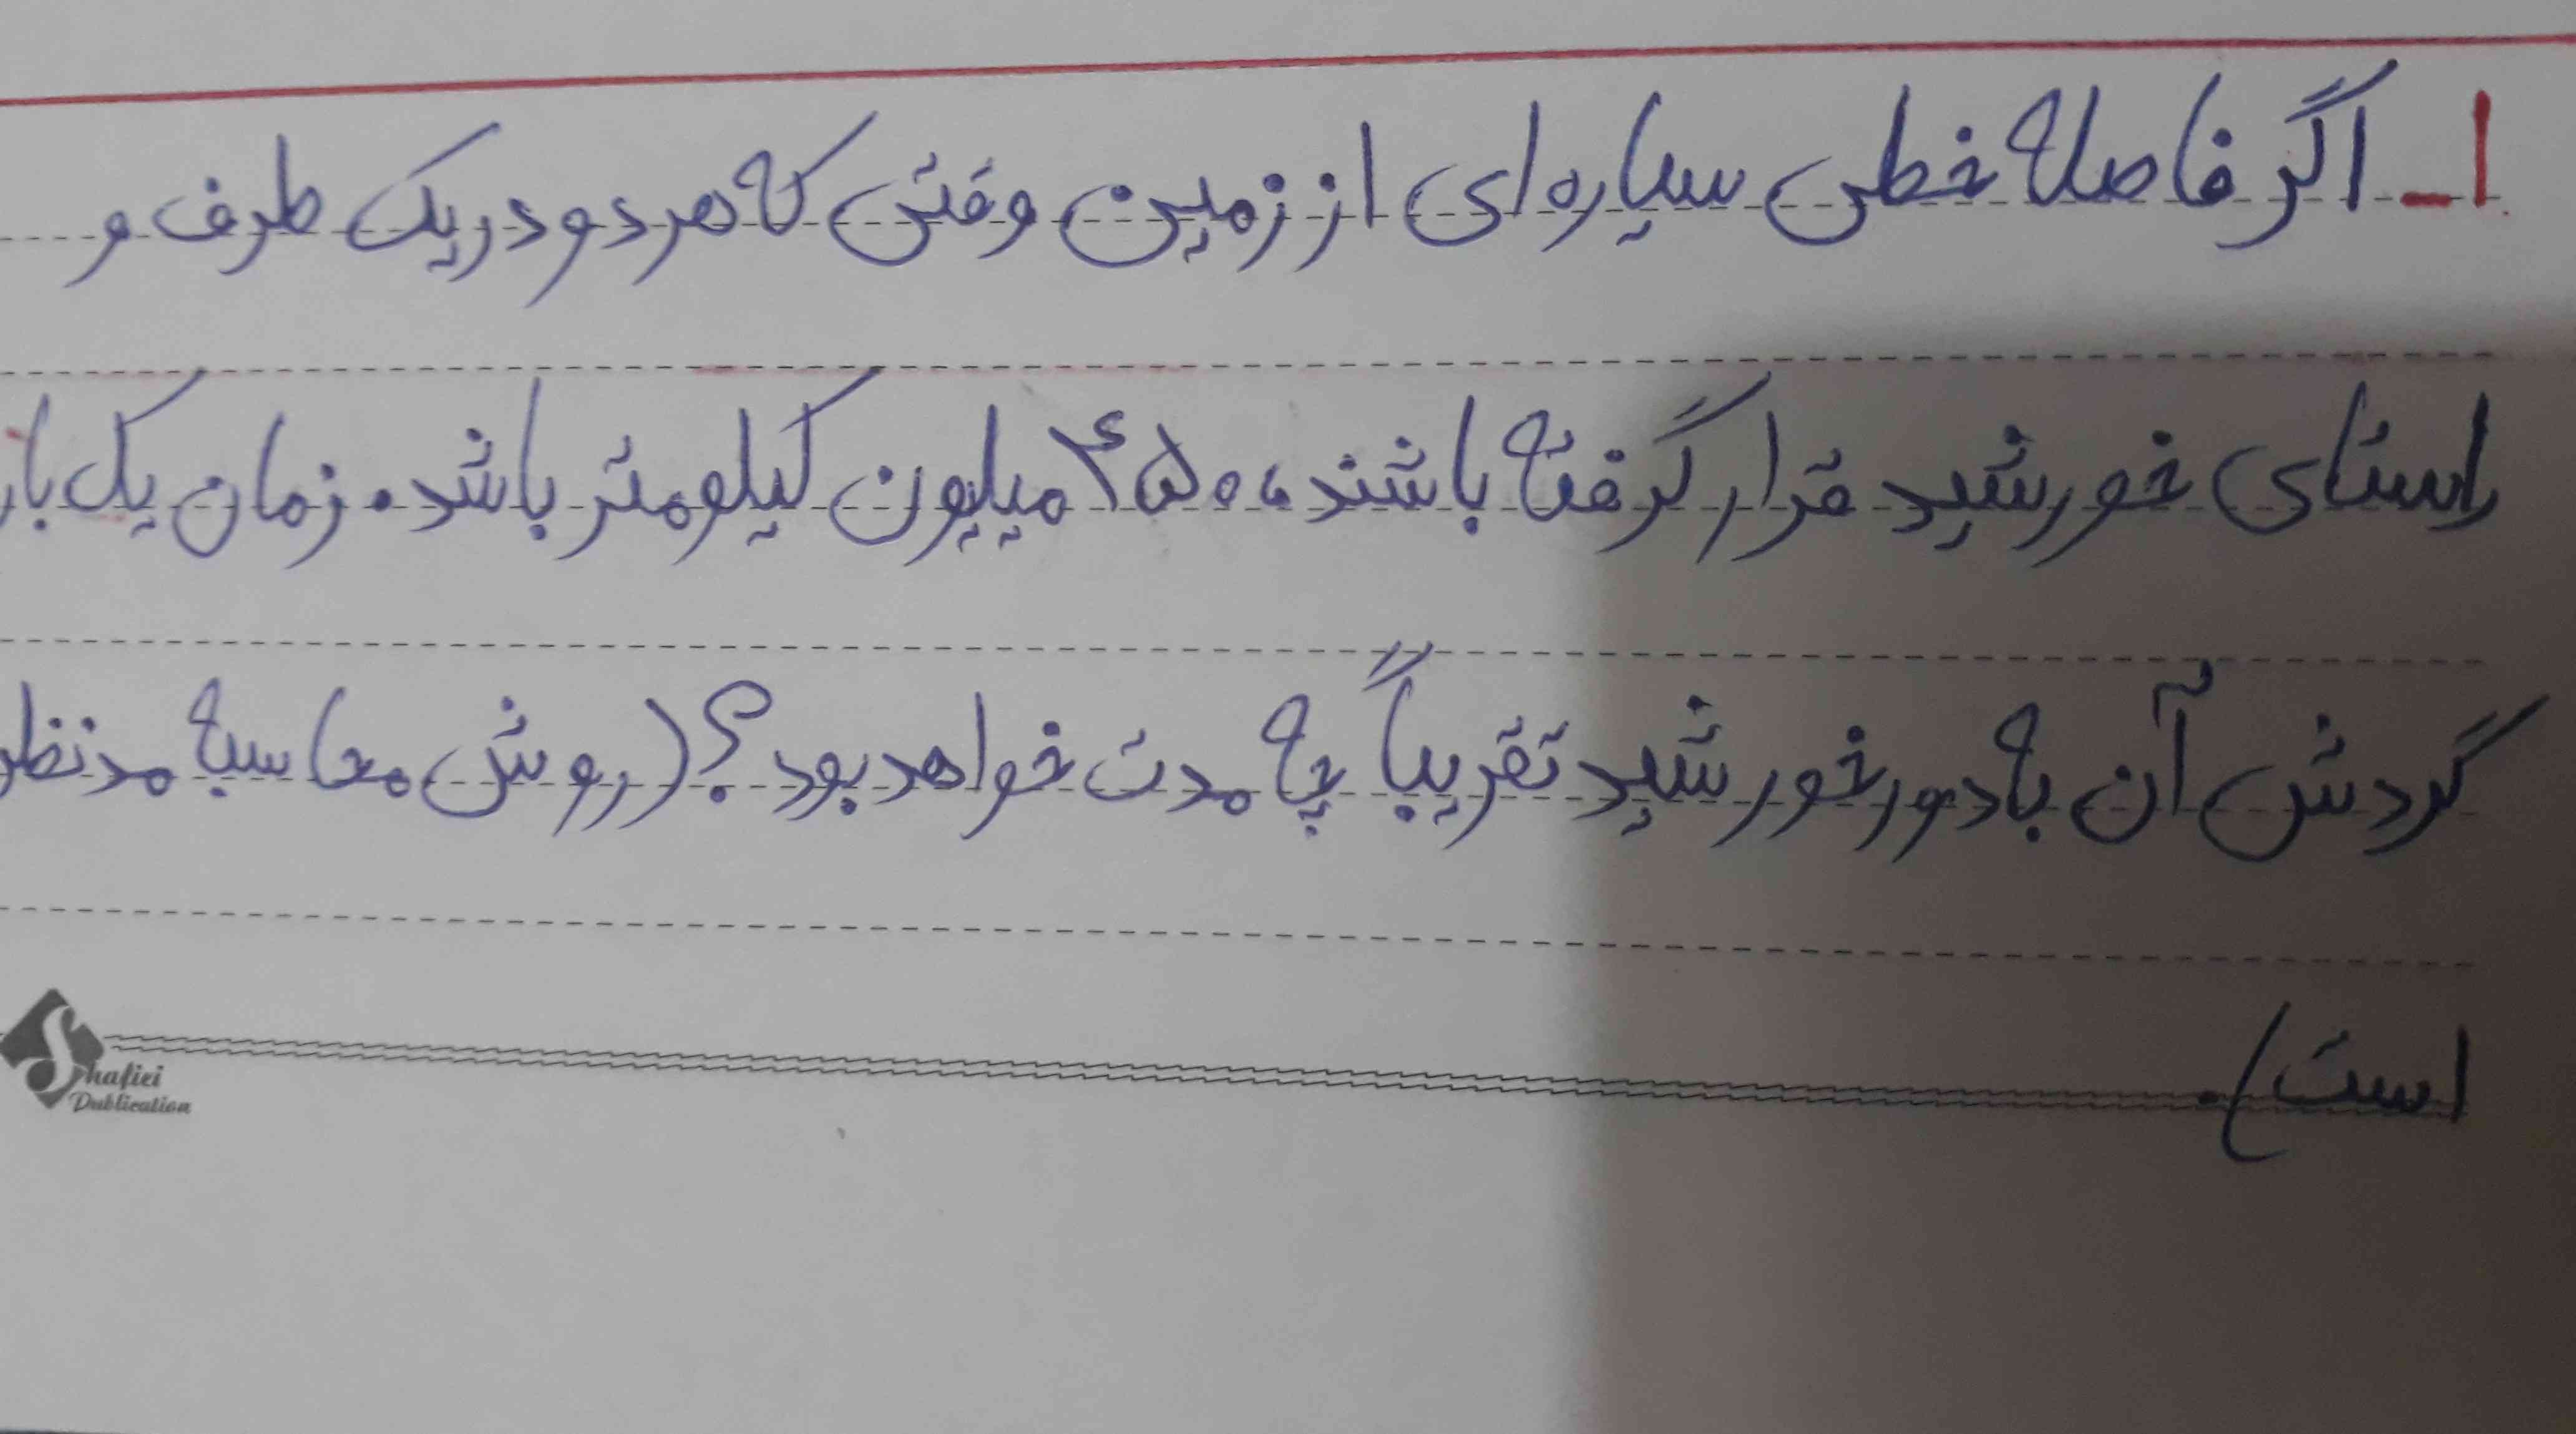 ۱_ اگر فاصله خطی سیاره‌ای از زمین وقتی که هر دو در یک طرف و
راستای خورشید قرار گرفته باشند، ۴۵۰۰ میلیون کیلومتر باشد. زمان یک بار
گردش آن به دور خورشید تقریباً چه مدت خواهد بود؟ (روش محاسبه مدنظر
است).
Shafiei
Publication